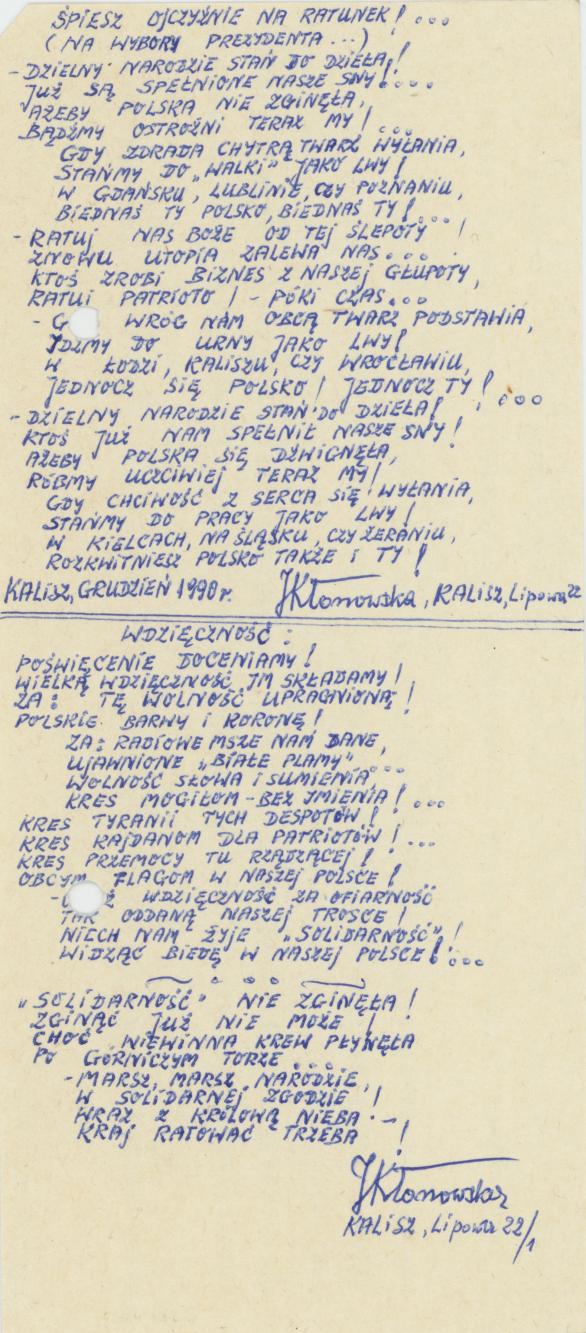 ŚPIESZ OJCZYŹNIE NA RATUNEK!...
(NA WYBORY PREZYDENTA...)
- DZIELNY NARODZIE STAŃ DO DZIEŁA!
JUŻ SĄ SPEŁNIONE NASZE SNY!....
AŻEBY POLSKA NIE ZGINĘŁA,
BĄDŹMY OSTROŻNI TERAZ MY!...
GDY ZDRADA CHYTRĄ TWARZ WYŁANIA,
STAŃMY DO „WALKI” JAKO LWY!
W GDAŃSKU, LUBLINIE, CZY POZNANIU,
BIEDNAŚ TY POLSKO, BIEDNAŚ TY!...
- RATUJ NAS BOŻE OD TEJ ŚLEPOTY!
ZNOWU UTOPIA ZALEWA NAS...
KTOŚ ZROBI BIZNES Z NASZEJ GŁUPOTY,
RATUJ PATRIOTO! - PÓKI CZAS...
- G WRÓG NAM OBCĄ TWARZ PODSTAWIA,
IDŹMY DO URNY JAKO LWY!
W ŁODZI, KALISZU, CZY WROCŁAWIU,
JEDNOCZ SIĘ POLSKO! JEDNOCZ TY!...
- DZIELNY NARODZIE STAŃ DO DZIEŁA!
KTOŚ JUŻ NAM SPEŁNIŁ NASZE SNY!
AŻEBY POLSKA SIĘ DŹWIGNĘŁA,
RÓBMY UCZCIWIEJ TERAZ MY!
GDY CHCIWOŚĆ Z SERCA SIĘ WYŁANIA,
STAŃMY DO PRACY JAKO LWY!
W KIELCACH, NA ŚLĄSKU, CZY ŻERANIU,
ROZKWITNIESZ POLSKO TAKŻE I TY!
KALISZ, GRUDZIEŃ 1990 r. JKłonowska, KALISZ, Lipowa 22
WDZIĘCZNOŚĆ:
POŚWIĘCENIE DOCENIAMY!
WIELKĄ WDZIĘCZNOŚĆ IM SKŁADAMY!
ZA: TĘ WOLNOŚĆ UPRAGNIONĄ!
POLSKIE BARWY I KORONĘ!
ZA: RADIOWE MSZE NAM DANE,
UJAWNIONE „BIAŁE PLAMY”
WOLNOŚĆ SŁOWA I SUMIENIA...
KRES MOGIŁOM - BEZ IMIENIA!...
KRES TYRANII TYCH DESPOTÓW!
KRES KAJDANOM DLA PATRIOTÓW!...
KRES PRZEMOCY TU RZĄDZĄCEJ!
OBCYM FLAGOM W NASZEJ POLSCE!
- WDZIĘCZNOŚĆ ZA OFIARNOŚĆ
TAK ODDANĄ NASZEJ TROSCE!
NIECH NAM ŻYJE „SOLIDARNOŚĆ”!
WIDZĄC BIEDĘ W NASZEJ POLSCE!...
„SOLIDARNOŚĆ” NIE ZGINĘŁA!
ZGINĄĆ JUŻ NIE MOŻE!
CHOĆ NIEWINNA KREW PŁYNĘŁA
PO GÓRNICZYM TORZE...
- MARSZ, MARSZ NARODZIE,
W SOLIDARNEJ ZGODZIE!
WRAZ Z KRÓLOWĄ NIEBA -
KRAJ RATOWAĆ TRZEBA!
JKłonowska
KALISZ, Lipowa 22/1